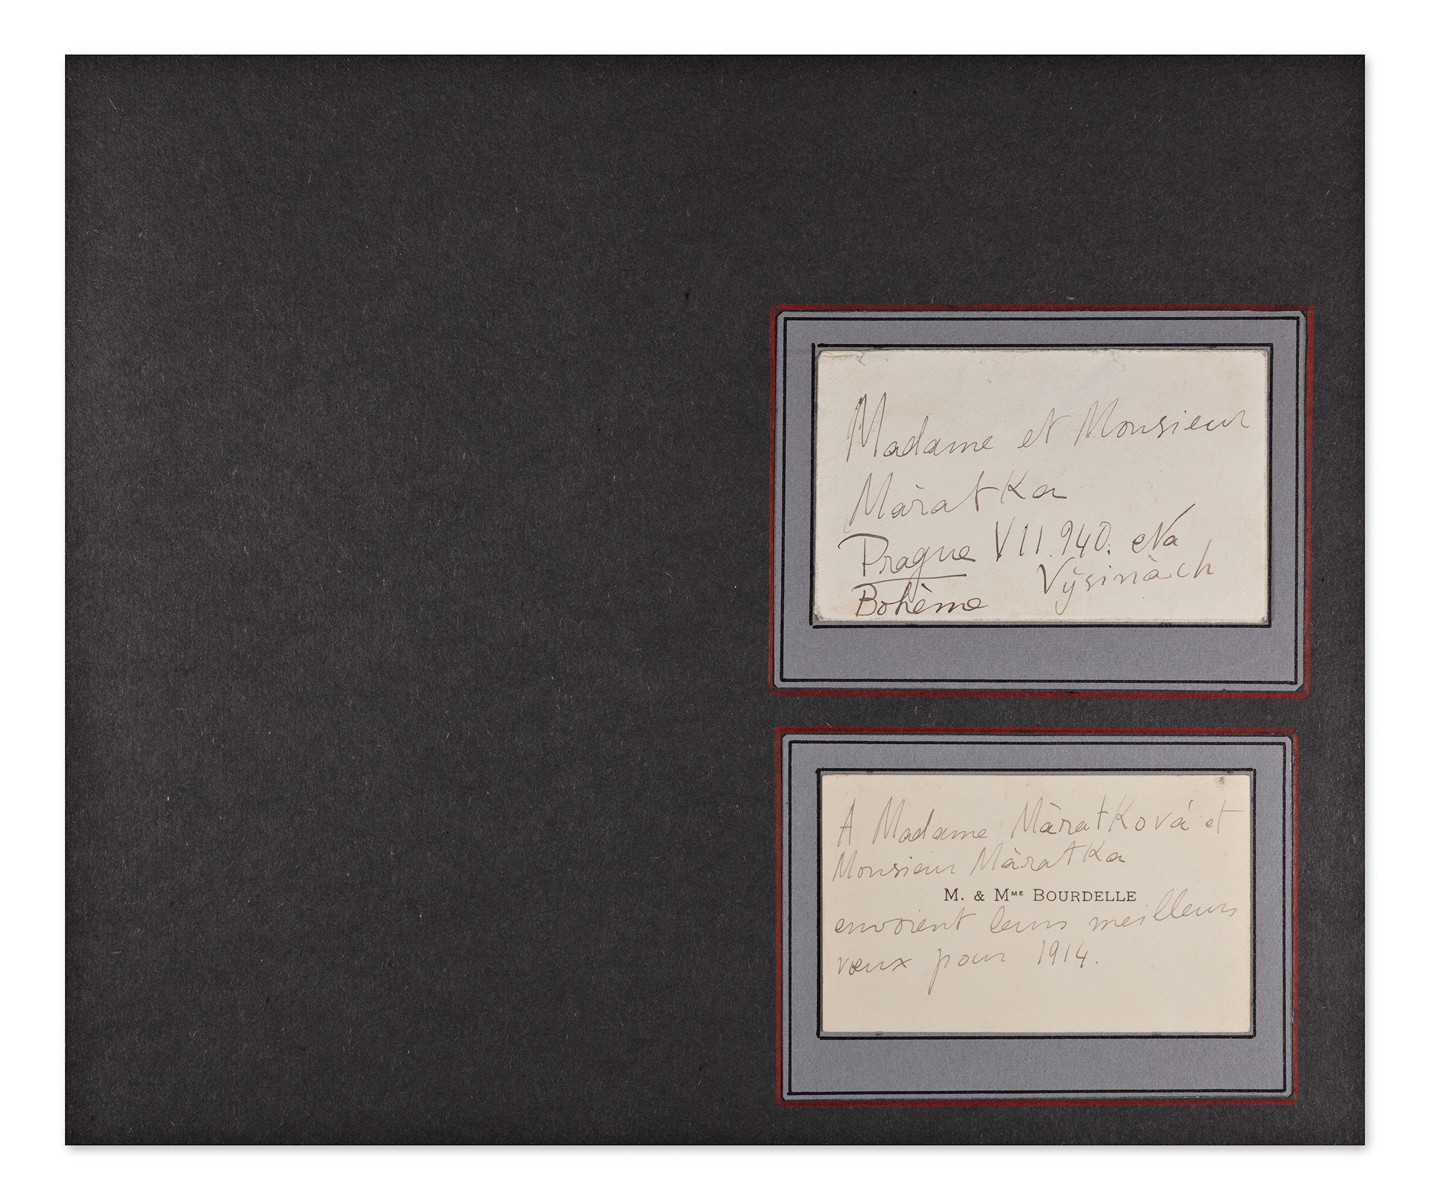 Madame et Monsieur
Màratka
Prague VII.940. Na
Bohème Výsinàch
A Madame Màratková et
Monsieur Màratka
M. & MME BOURDELLE
envoient leurs meilleurs
vœux pour 1914.